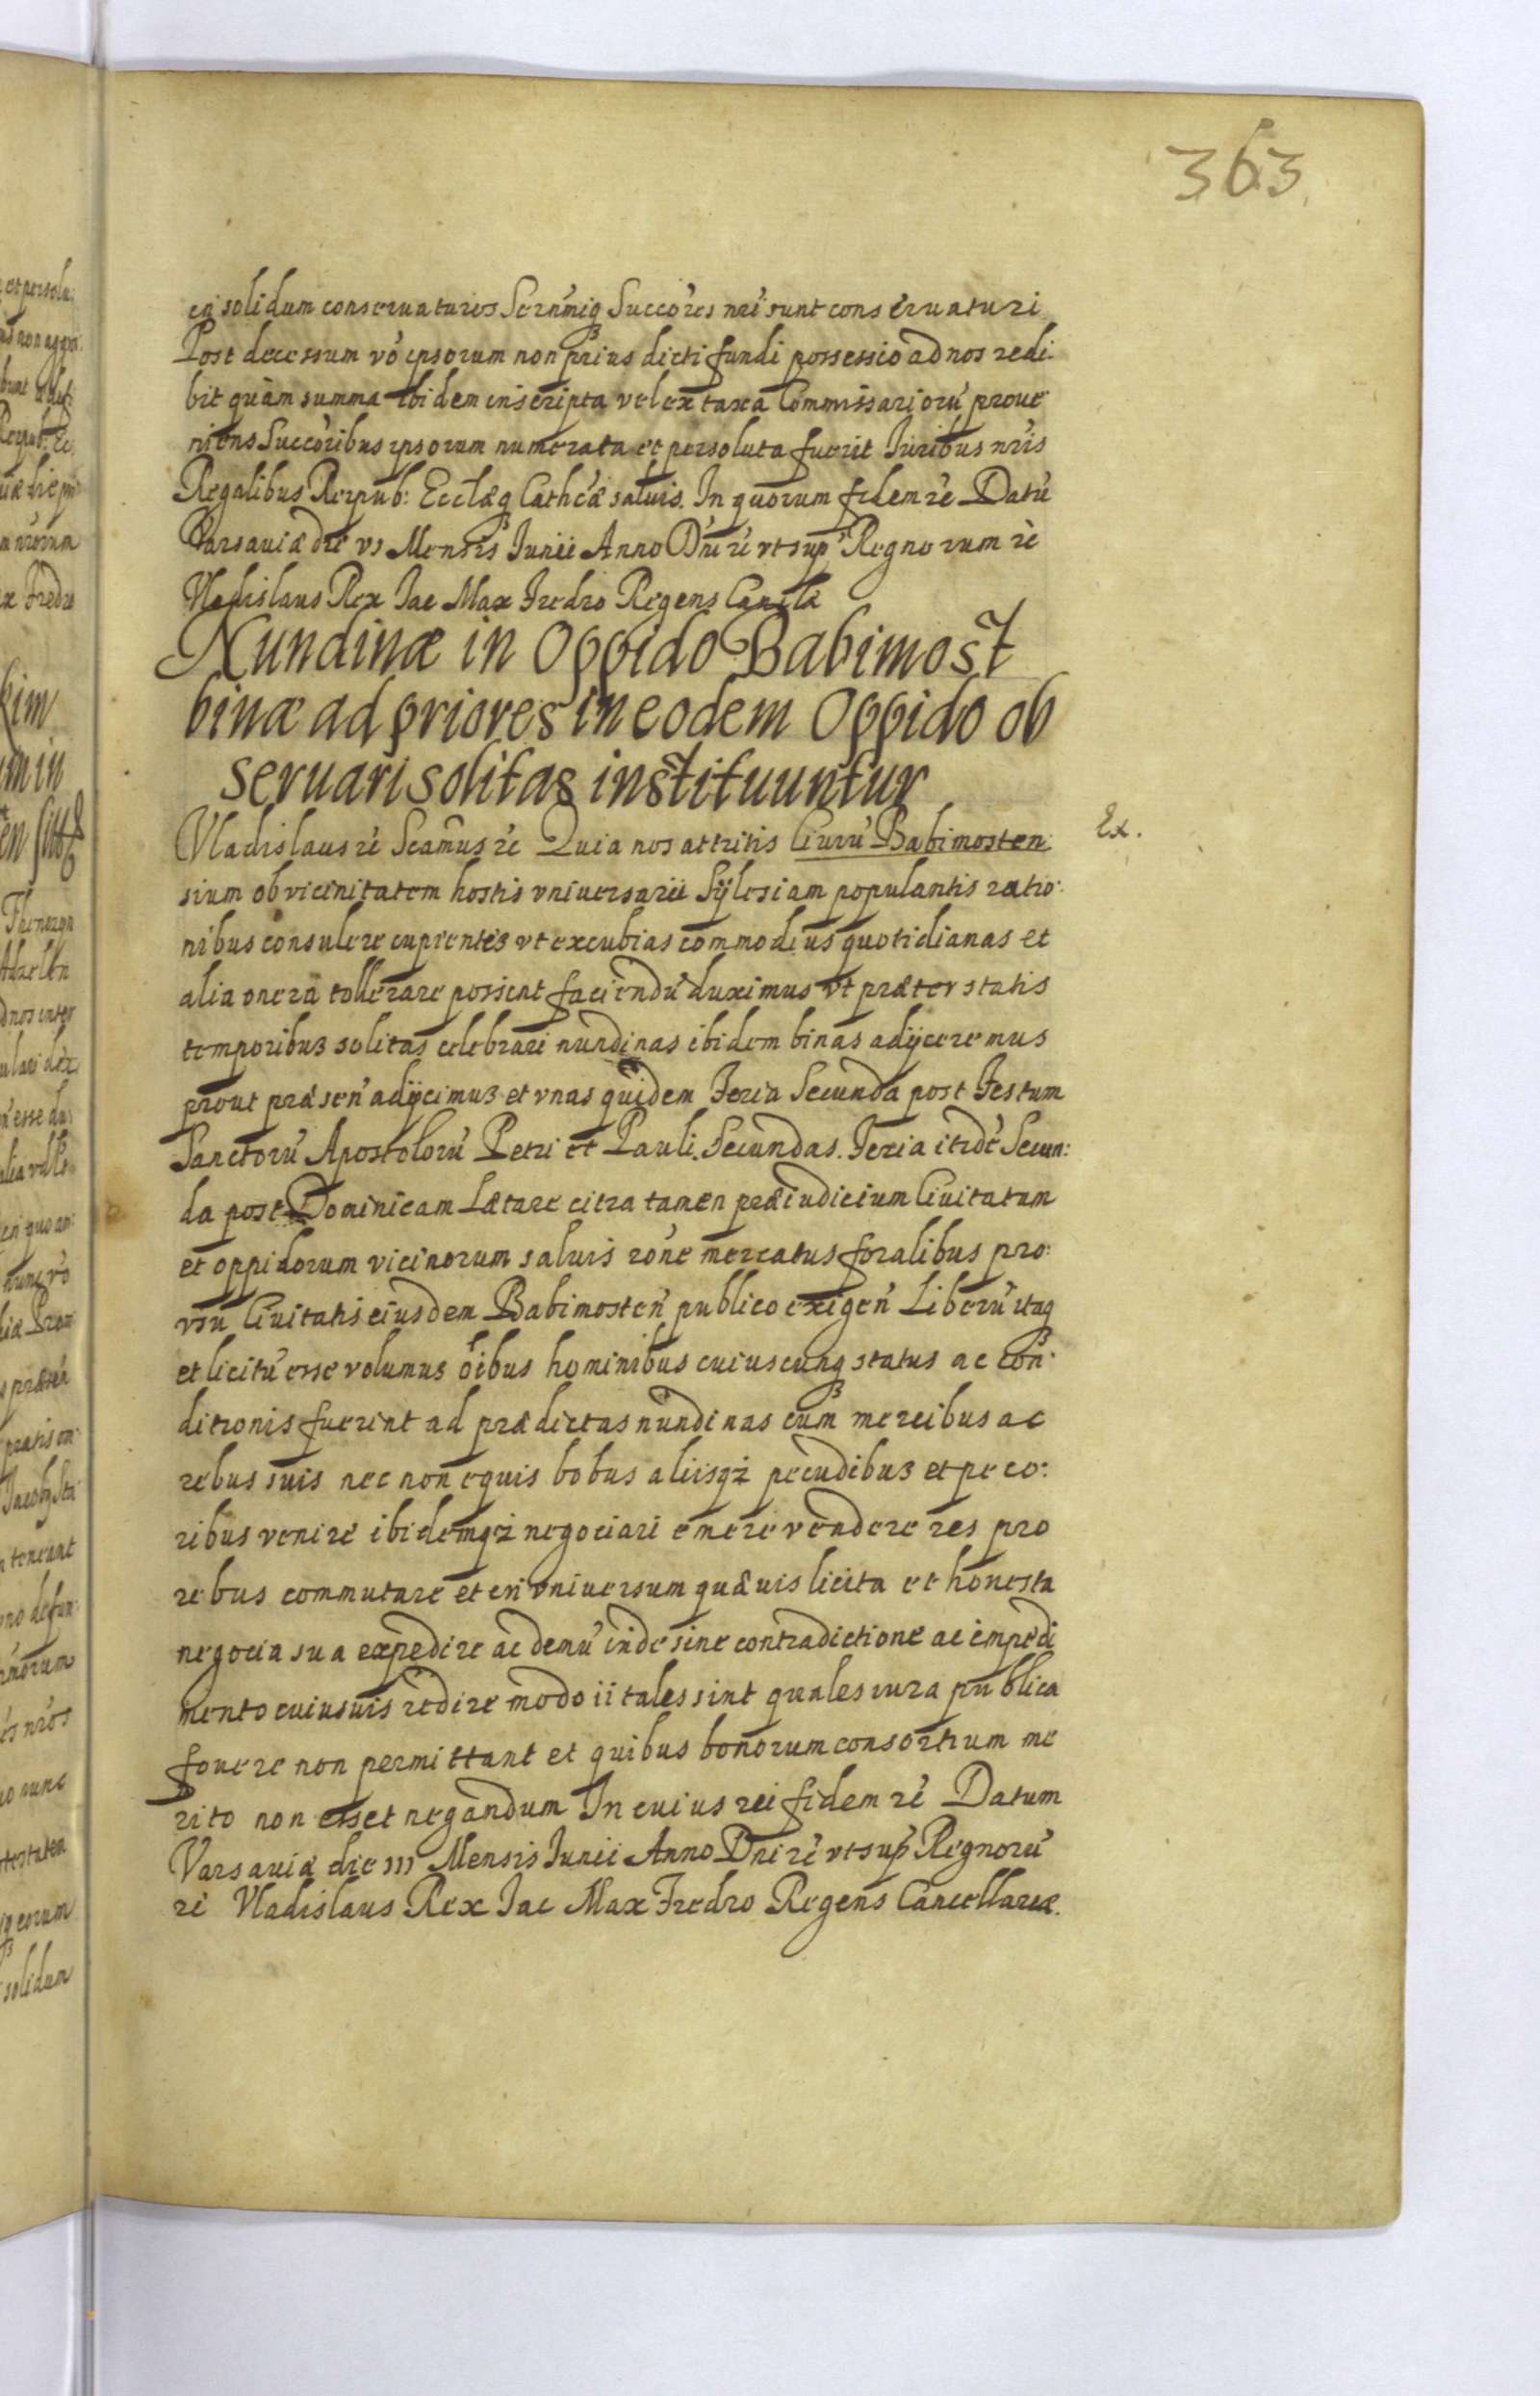 363
in solidum conseruaturos Sernmiq₃ Succo'res nri sunt conseruaturi
Post decessum vo ipsorum non prius dicti fundi possessio ad nos redi-
bit quam summa ibidem inscripta vel ex taxa Commissarioru proue
niens Succoribus ipsorum numerata et persoluta fuerit Iuribus nris
Regalibus Reipub: Ecclæq₃ Cathcæ saluis. In quorum fidem rc Datu
Varsauiæ die vı Mensis Iunii Anno Dni rc vt sup Regnorum rc
Vladislaus Rex Iac Max Fredro Regens Canclæ
Nundinæ in Oppido Babimost
binæ ad priores in eodem Oppido ob
seruari solitas instituuntur
Vladislaus rc Scamus rc Quia nos attritis Ciuiu Babimosten: Ex.
sium ob vicinitatem hostis vniuersarii Sÿlesiam populantis ratio:
nibus consulere cupientes vt excubias commodius quotidianas et
alia onera tollerare possent faciendu duximus vt præter statis
temporibus solitas celebrari nundinas ibidem binas adÿceremus
prout præsen adÿcimus et vnas quidem Feria Secunda post Festum
Sanctoru Apostoloru Petri et Pauli. Secundas. Feria itide Secun:
da post Dominicam Lætare citra tamen præiudicium Ciuitatum
et oppidorum vicinorum saluis rone mercatus foralibus pro:
vsu Ciuitatis eiusdem Babimosten publico exigen Liberu itaq₃
et licitu esse volumus oibus hominibus cuiuscunq₃ status ac con:
ditionis fuerint ad prædictas nundinas cum mercibus ac
rebus suis nec non equis bobus aliisqz pecudibus et peco:
ribus venire ibidemqz negociari emere vendere res pro
rebus commutare et in vniuersum quæuis licita et honesta
negocia sua expedire ac demu inde sine contradictione ac impedi
mento cuiusuis redire modo ii tales sint quales iura publica
fouere non permittant et quibus bonorum consortium me
rito non esset negandum In cuius rei fidem rc Datum
Varsauiæ die ııı Mensis Iunii Anno Dni rc vt sup Regnoru
rc Vladislaus Rex Iac Max Fredro Regens Cancellariæ.